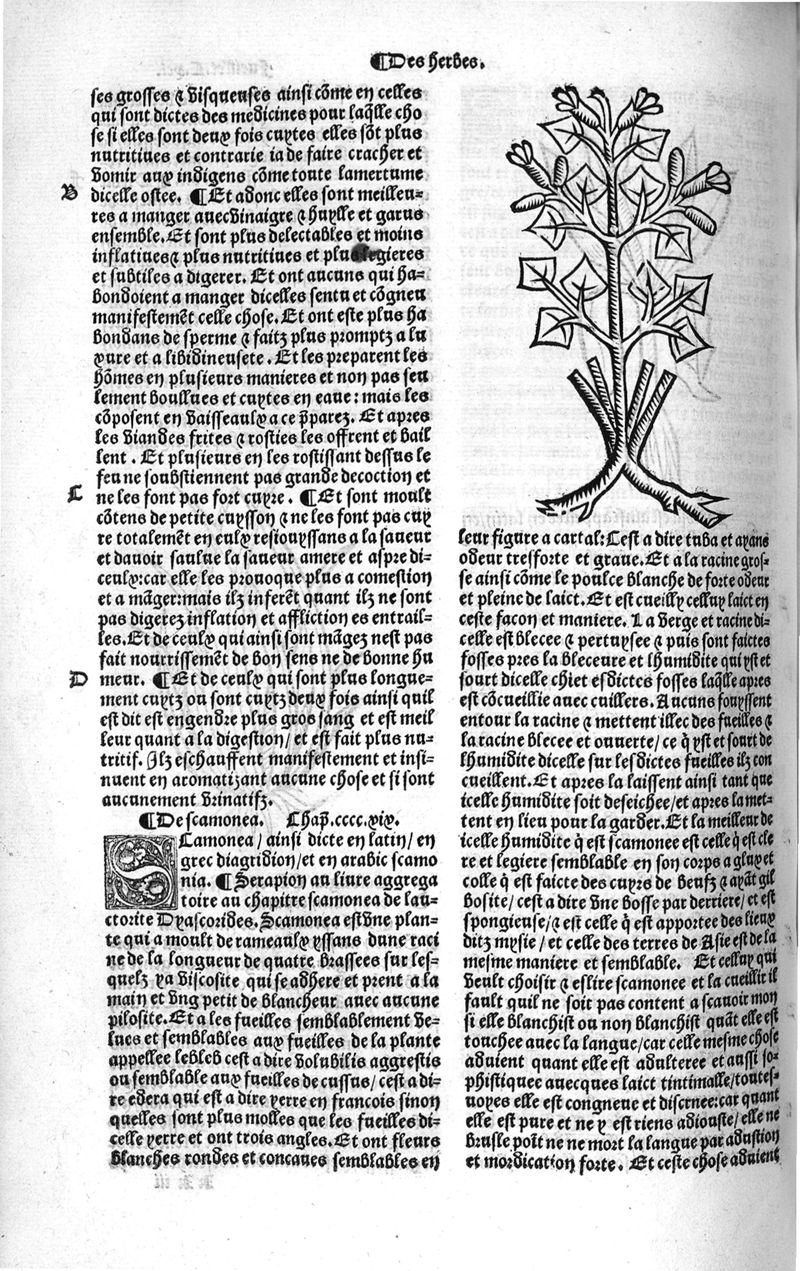 ¶Des herbes.
ses grosses ⁊ visqueuses ainsi cõme en celles
qui sont dictes des medicines pour laq̃lle cho
se si elles sont deux fois cuytes elles sõt plus
nutritiues et contrarie ia de faire cracher et
vomir aux indigens cõme toute lamertume
B
dicelle ostee. ¶Et adonc elles sont meilleu-
res a manger auec vinaigre ⁊ huylle et garus
ensemble. Et sont plus delectables et moins
inflatiues ⁊ plus nutritiues et plus legieres
et subtiles a digerer. Et ont aucuns qui ha-
bondoient a manger dicelles sentu et cõgneu
manifestemẽt celle chose. Et ont este plus ha
bondans de sperme ⁊ faitz plus promptz a lu
xure et a libidineusete. Et les preparent les
hõmes en plusieurs manieres et non pas seu
lement boullues et cuytes en eaue: mais les
cõposent en vaisseaulx a ce p̃parez. Et apres
les viandes frites ⁊ rosties les offrent et bail
lent. Et plusieurs en les rostissant dessus le
feu ne soubstiennent pas grande decoction et
C
ne les font pas fort cuyre. ¶Et sont moult
cõtens de petite cuysson ⁊ ne les font pas cuy
re totalemẽt en eulx resiouyssans a la saueur
et dauoir saulue la saueur amere et aspre di-
ceulx: car elle les prouoque plus a comestion
et a mãger: mais ilz inferẽt quant ilz ne sont
pas digerez inflation et affliction es entrail-
les. Et de ceulx qui ainsi sont mãgez nest pas
fait nourrissemẽt de bon sens ne de bonne hu
D
meur. ¶Et de ceulx qui sont plus longue-
ment cuytz ou sont cuytz deux fois ainsi quil
est dit est engendre plus gros sang et est meil
leur quant a la digestion/ et est fait plus nu-
tritif. Ilz eschauffent manifestement et insi-
nuent en aromatizant aucune chose et si sont
aucunement vrinatifz.
¶De scamonea. Chap̃. cccc.xix.
SCamonea/ ainsi dicte en latin/ en
grec diagridion/ et en arabic scamo
nia. ¶Serapion au liure aggrega
toire au chapitre scamonea de lau-
ctorite Dyascorides. Scamonea est vne plan-
te qui a moult de rameaulx yssans dune raci
ne de la longueur de quatre brassees sur les-
quelz ya viscosite qui se adhere et prent a la
main et vng petit de blancheur auec aucune
pilosite. Et a les fueilles semblablement ve-
lues et semblables aux fueilles de la plante
appellee lebleb cest a dire volubilis aggrestis
ou semblable aux fueilles de cussus/ cest a di-
re edera qui est a dire yerre en francois sinon
quelles sont plus molles que les fueilles di-
celle yerre et ont trois angles. Et ont fleurs
blanches rondes et concaues semblables en
leur figure a cartal: Cest a dire tuba et ayans
odeur tresforte et graue. Et a la racine gros-
se ainsi cõme le poulce blanche de forte odeur
et pleine de laict. Et est cueilly celluy laict en
ceste facon et maniere. La verge et racine di-
celle est blecee ⁊ pertuysee ⁊ puis sont faictes
fosses pres la bleceure et lhumidite qui yst et
sourt dicelle chiet esdictes fosses laq̃lle apres
est cõcueillie auec cuillers. Aucuns fouyssent
entour la racine ⁊ mettent illec des fueilles ⁊
la racine blecee et ouuerte/ ce q̃ yst et sourt de
lhumidite dicelle sur lesdictes fueilles ilz con
cueillent. Et apres la laissent ainsi tant que
icelle humidite soit deseichee/ et apres la met-
tent en lieu pour la garder. Et la meilleur de
icelle humidite q̃ est scamonee est celle q̃ est cle
re et legiere semblable en son corps a glux et
colle q̃ est faicte des cuyrs de beufz ⁊ ayãt gib
bosite/ cest a dire vne bosse par derriere/ et est
spongieuse/ ⁊ est celle q̃ est apportee des lieux
ditz mysie/ et celle des terres de Asie est de la
mesme maniere et semblable. Et celluy qui
veult choisir ⁊ eslire scamonee et la cueillir il
fault quil ne soit pas content a scauoir mon
si elle blanchist ou non blanchist quãt elle est
touchee auec la langue/ car celle mesme chose
aduient quant elle est adulteree et aussi so-
phistiquee auecques laict tintimalle/ toutes-
uoyes elle est congneue et discrnee: car quant
elle est pure et ne y est riens adiouste/ elle ne
brusle poĩt ne ne mort la langue par adustion
et mordication forte. Et ceste chose aduient